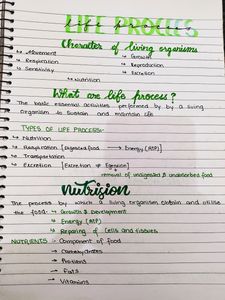 LIFE PROCESS
Character of living organisms
→ Movement
→ Growth
→ Respiration
→ Reproduction
→ Sensitivity
→ Excretion
→ Nutrition
What are life process?
The basic essential activities performed by by a living
organism to sustain and maintain life
TYPES OF LIFE PROCESS:-
→ Nutrition
→ Respiration [Digested food → Energy (ATP)]
→ Transportation
→ Excretion [Excretion ≠ Egestion]
removal of undigested & unabsorbed food
nutrision
The process by which a living organism obtain and utilise
the food:
→ Growth & Development
→ Energy (ATP)
→ Repairing of cells and tissues
NUTRIENTS :- Component of food
→ Carbohydrates
→ Proteins
→ Fats
→ Vitamins